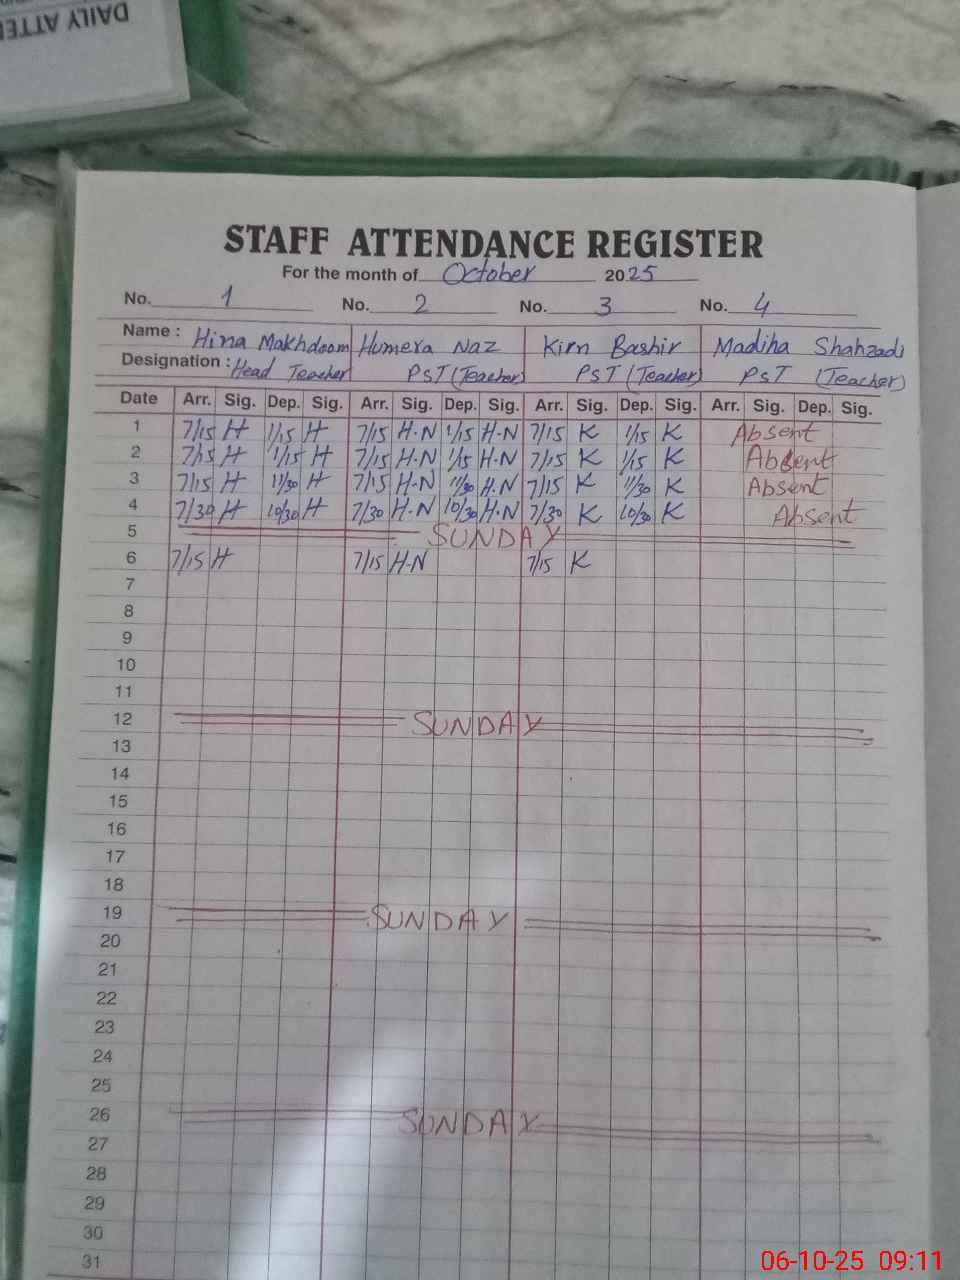 DAILY ATTE
STAFF ATTENDANCE REGISTER
For the month of October 2025
No. 1 No. 2 No. 3 No. 4
Name : Hina Makhdoom Humera Naz Kirn Bashir Madiha Shahzadi
Designation : Head Teacher PST (Teacher) PST (Teacher) PST (Teacher)
Date Arr. Sig. Dep. Sig. Arr. Sig. Dep. Sig. Arr. Sig. Dep. Sig. Arr. Sig. Dep. Sig.
1 7/15 H 1/15 H 7/15 H.N 1/15 H.N 7/15 K 1/15 K Absent
2 7/15 H 1/15 H 7/15 H.N 1/15 H.N 7/15 K 1/15 K Absent
3 7/15 H 11/30 H 7/15 H.N 11/30 H.N 7/15 K 11/30 K Absent
4 7/30 H 10/30 H 7/30 H.N 10/30 H.N 7/30 K 10/30 K Absent
5 SUNDAY
6 7/15 H 7/15 H.N 7/15 K
7
8
9
10
11
12 SUNDAY
13
14
15
16
17
18
19 SUNDAY
20
21
22
23
24
25
26 SUNDAY
27
28
29
30
31
06-10-25 09:11